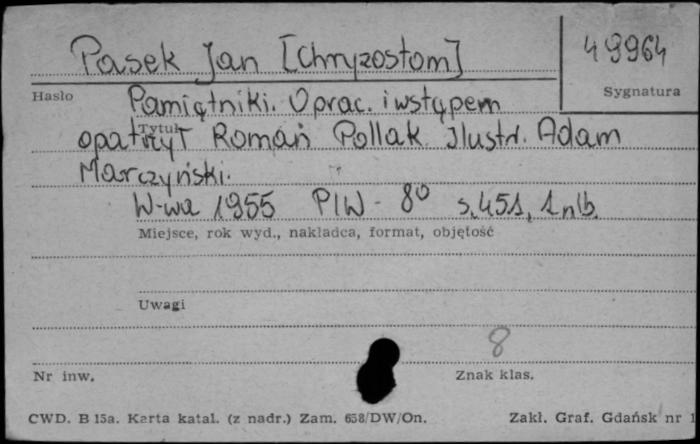 Pasek Jan [Chryzostom]
49964
Hasło
Sygnatura
Pamiętniki. Oprac. i wstępem
Tytuł
opatrzył Roman Pollak. Ilustr. Adam
Marczyński.
W-wa 1955 PIW - 8⁰ s. 451, 1 nlb.
Miejsce, rok wyd., nakładca, format, objętość
Uwagi
8
Nr inw.
Znak klas.
CWD. B 15a. Karta katal. (z nadr.) Zam. 658/DW/On.
Zakl. Graf. Gdańsk nr 1